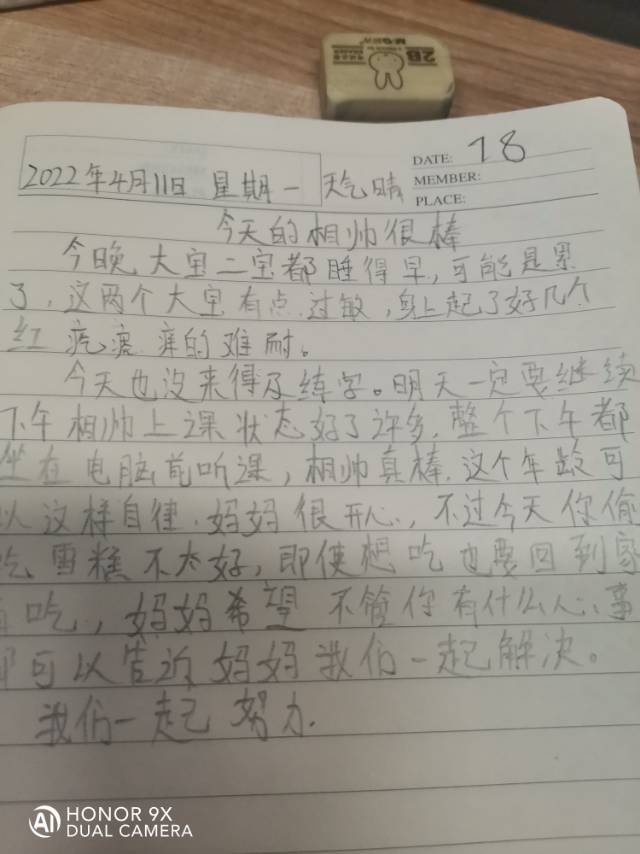 2B
DATE: 18
2022年4月11日 星期一 天气晴
MEMBER:
PLACE:
今天的相帅很棒
今晚大宝二宝都睡得早,可能是累
了,这两个大宝有点过敏,身上起了好几个
红疙瘩痒的难耐。
今天也没来得及练字。明天一定要继续
下午相帅上课状态好了许多,整个下午都
坐在电脑前听课,相帅真棒.这个年龄可
以这样自律.妈妈很开心,不过今天你偷
吃雪糕不太好,即使想吃也要回到家
吃,妈妈希望不管你有什么心事
都可以告诉妈妈我们一起解决。
我们一起努力.
HONOR 9X
DUAL CAMERA